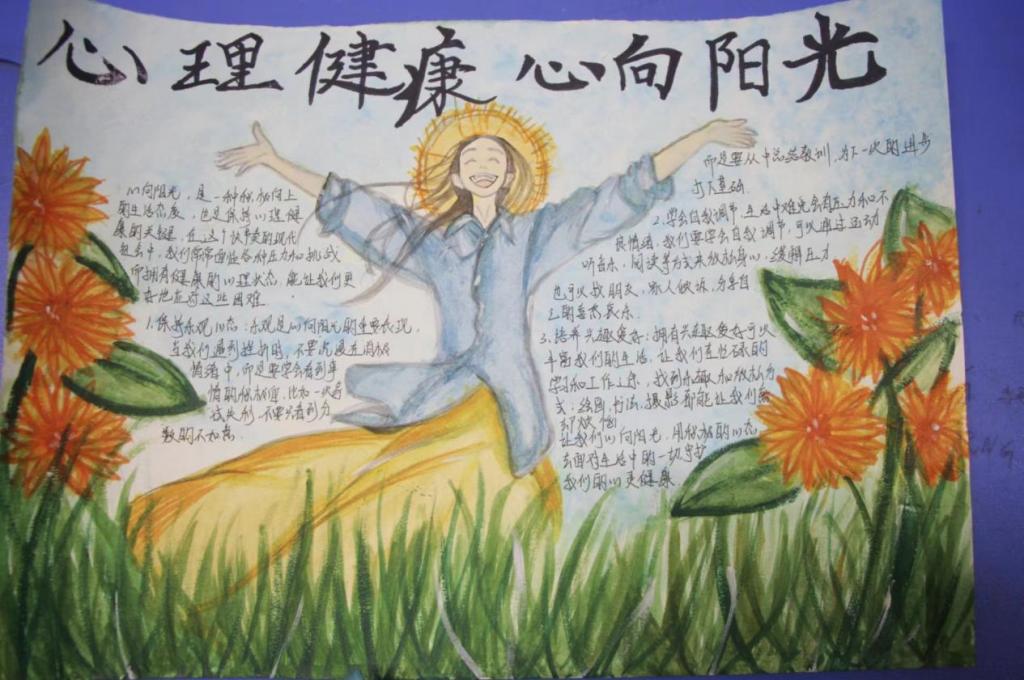 心理健康 心向阳光
心向阳光,是一种积极向上
的生活态度,也是保持心理健
康的关键,在这个快节奏的现代
社会中,我们常常面临各种压力和挑战
而拥有健康的心理状态,能让我们更
好地应对这些困难.
1.保持乐观心态:乐观是心向阳光的重要表现,
当我们遇到挫折时,不要沉浸在消极
情绪中,而是要学会看到事
情的积极面,比如一次考
试失利,不要只看到分
数的不如意.
而是要从中总结教训,为下一次的进步
打下基础.
2.学会自我调节,生活中难免会有压力和不
良情绪,我们要学会自我调节,可以通过运动
听音乐,阅读等方式来放松身心,缓解压力
也可以找朋友,家人倾诉,分享自
己的喜怒哀乐.
3.培养兴趣爱好:拥有兴趣爱好可以
丰富我们的生活,让我们在忙碌的
学习和工作之余,找到乐趣和放松方
式:绘画,书法,摄影都能让我们
让我们心向阳光,用积极的心态
去面对生活中的一切
我们的心更健康.